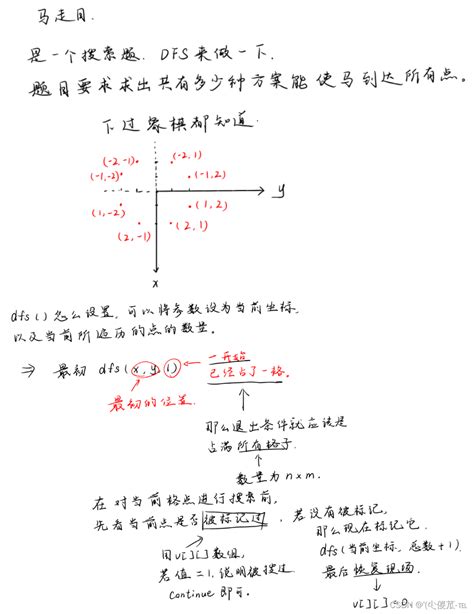 马走日.
是一个搜索题. DFS来做一下.
题目要求求出共有多少种方案能使马到达所有点。
下过象棋都知道.
(-2,-1)
(-2,1)
(-1,-2)
(-1,2)
y
(1,-2)
(1,2)
(2,-1)
(2,1)
x
dfs()怎么设置,可以将参数设为当前坐标,
以及当前所遍历的点的数量。
⇒ 最初 dfs(x,y,1)
一开始
已经占了一格。
最初的位置.
那么退出条件就应该是
占满所有格子.
数量为n×m.
在对当前格点进行搜索前,
先看当前点是否被标记过,
用v[][]数组,
若值=1.说明被搜过
continue即可。
若没有被标记,
那么现在标记它.
dfs(当前坐标,总数+1).
最后恢复现场.
v[][]=0